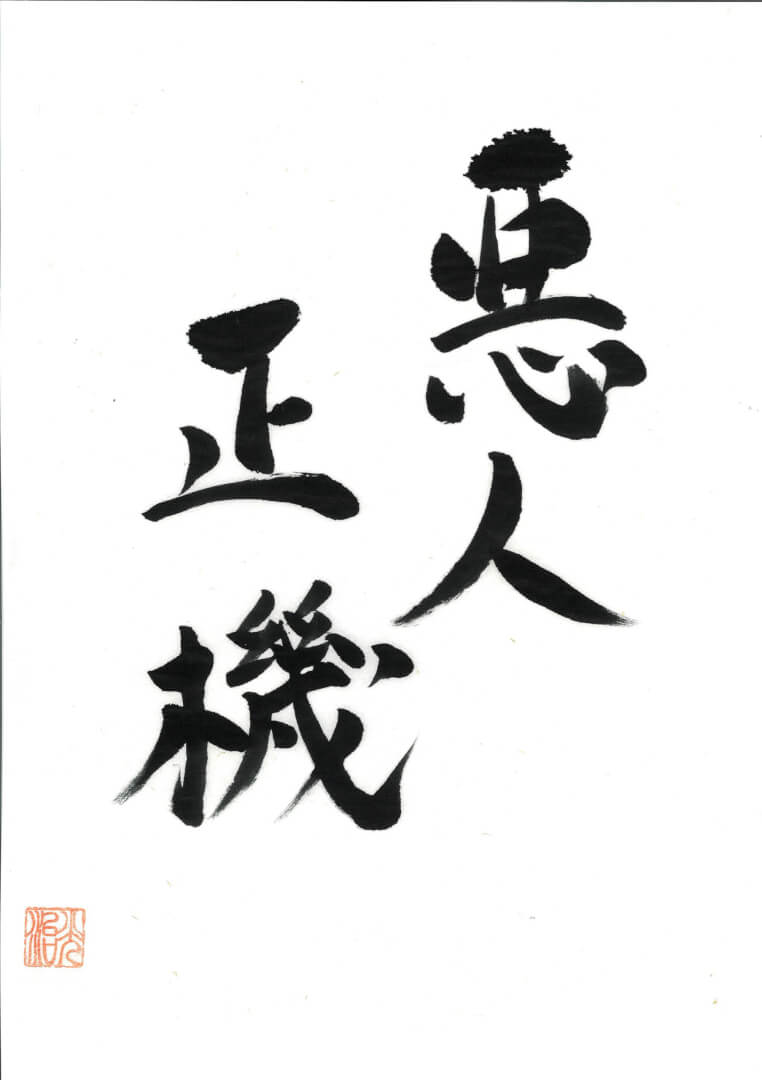 悪人
正機